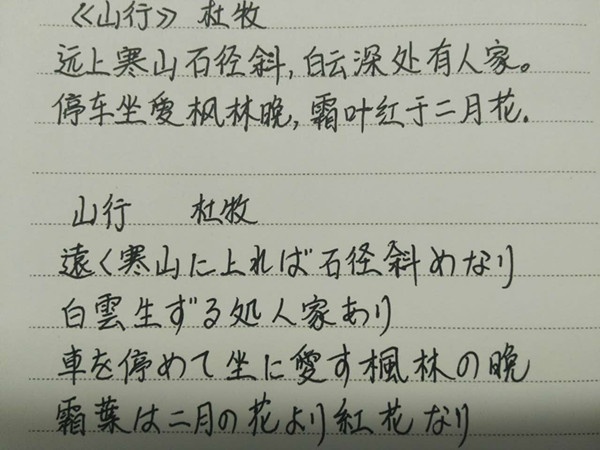 《山行》 杜牧
远上寒山石径斜,白云深处有人家。
停车坐愛枫林晚,霜叶红于二月花.
山行 杜牧
遠く寒山に上れば石径斜めなり
白雲生ずる処人家あり
車を停めて坐に愛す楓林の晩
霜葉は二月の花より紅花なり